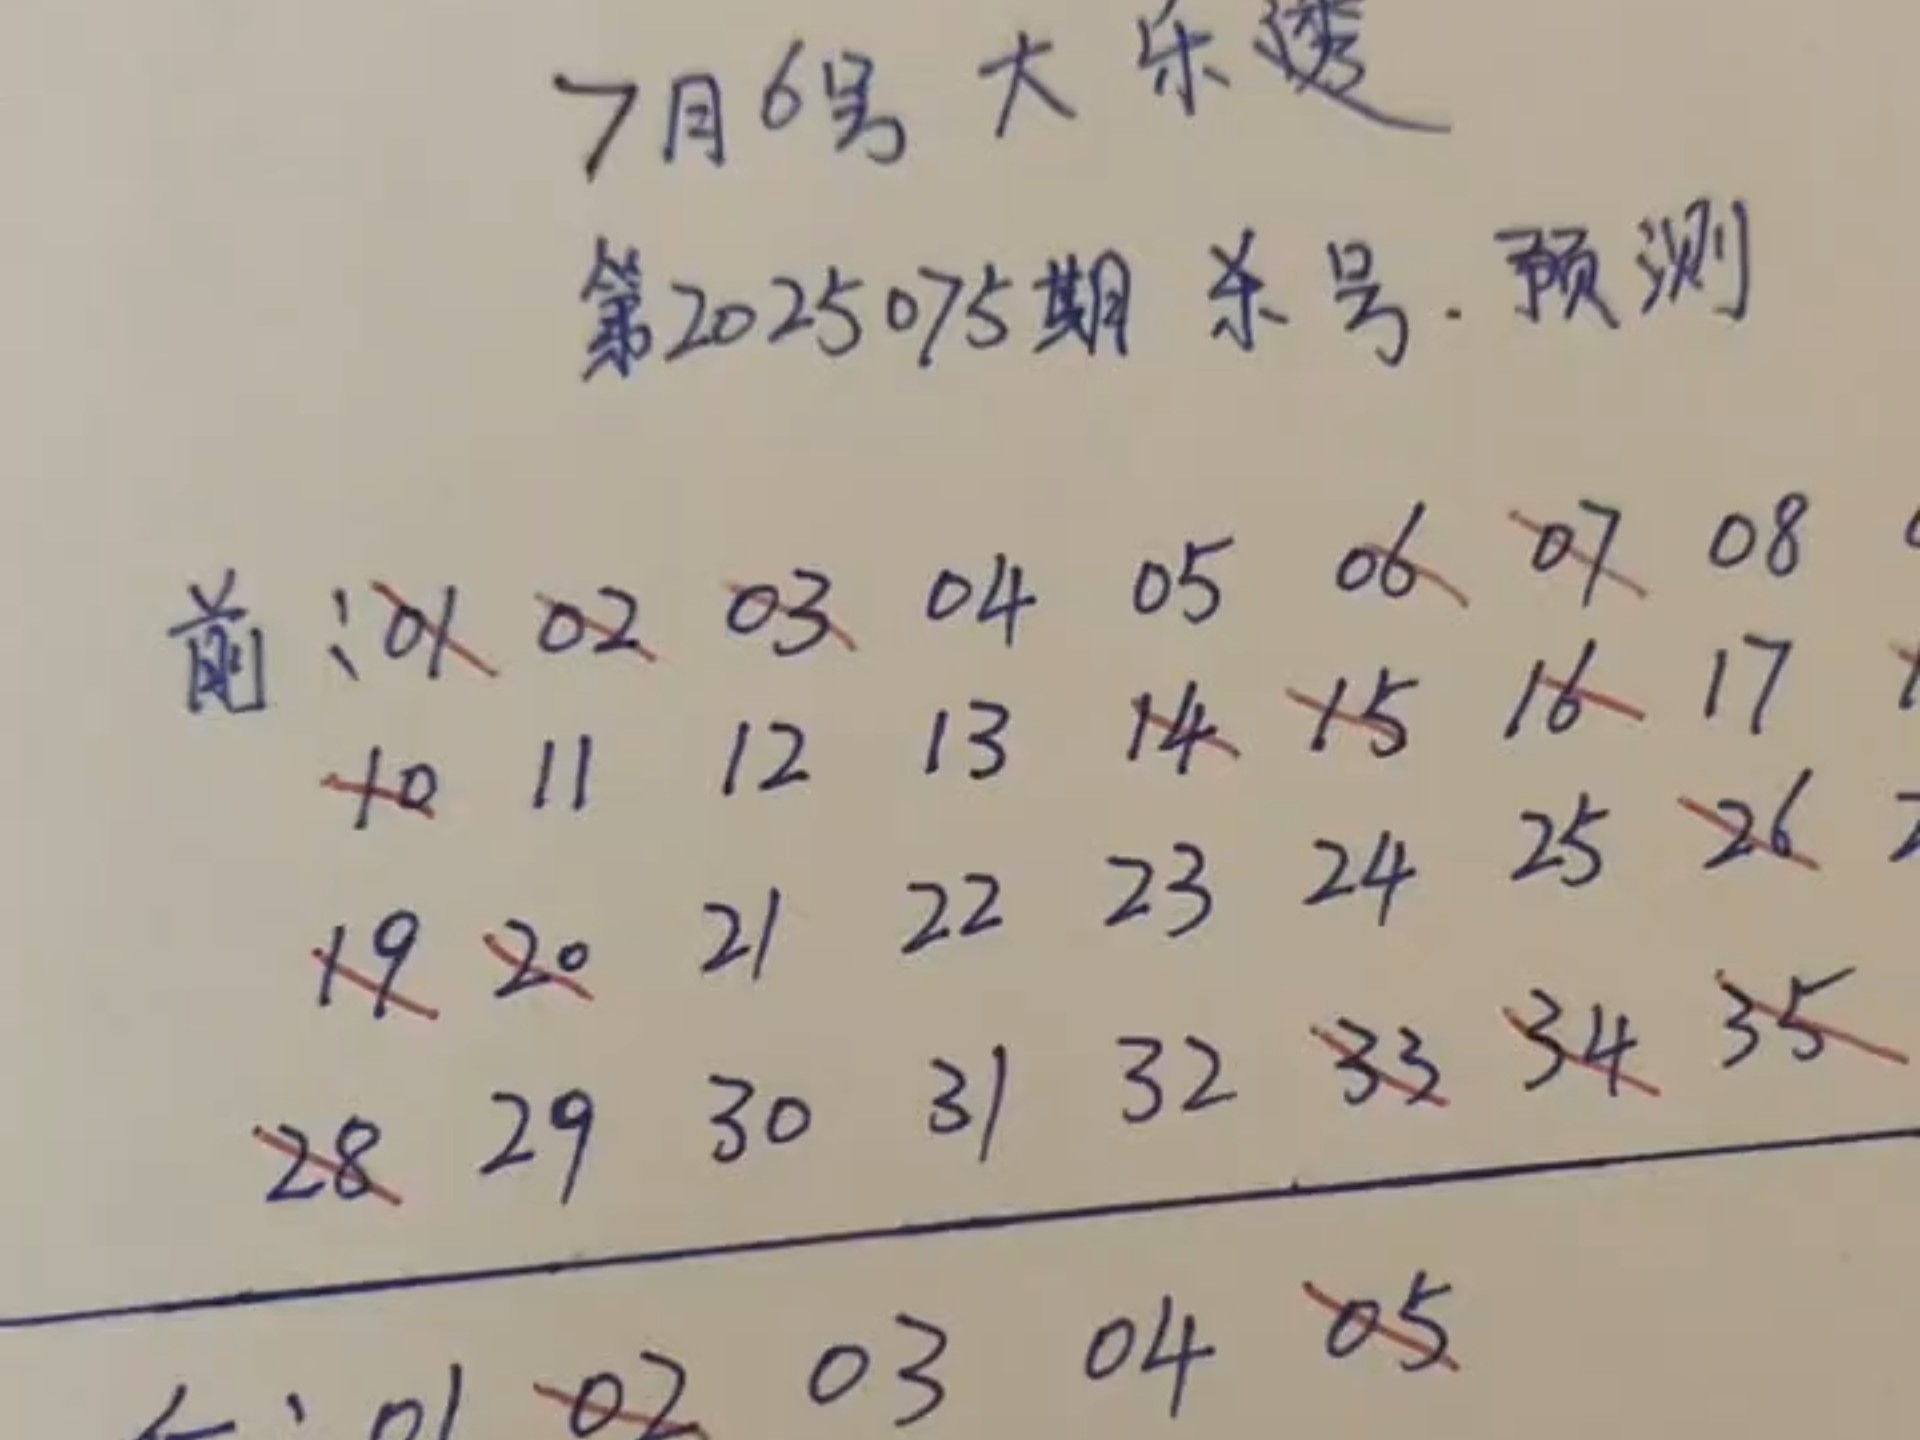 7月6号 大乐透
第2025075期 杀号.预测
前:01 02 03 04 05 06 07 08
10 11 12 13 14 15 16 17
19 20 21 22 23 24 25 26
28 29 30 31 32 33 34 35
01 02 03 04 05